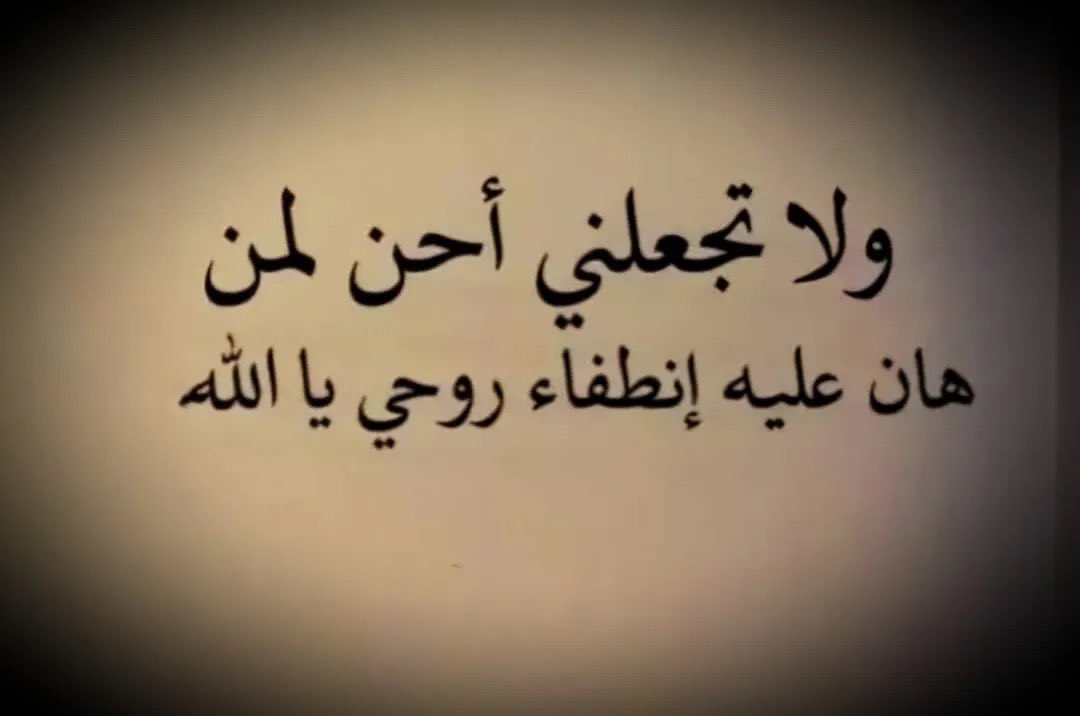 ولا تجعلني أحن لمن
هان عليه إنطفاء روحي يا الله